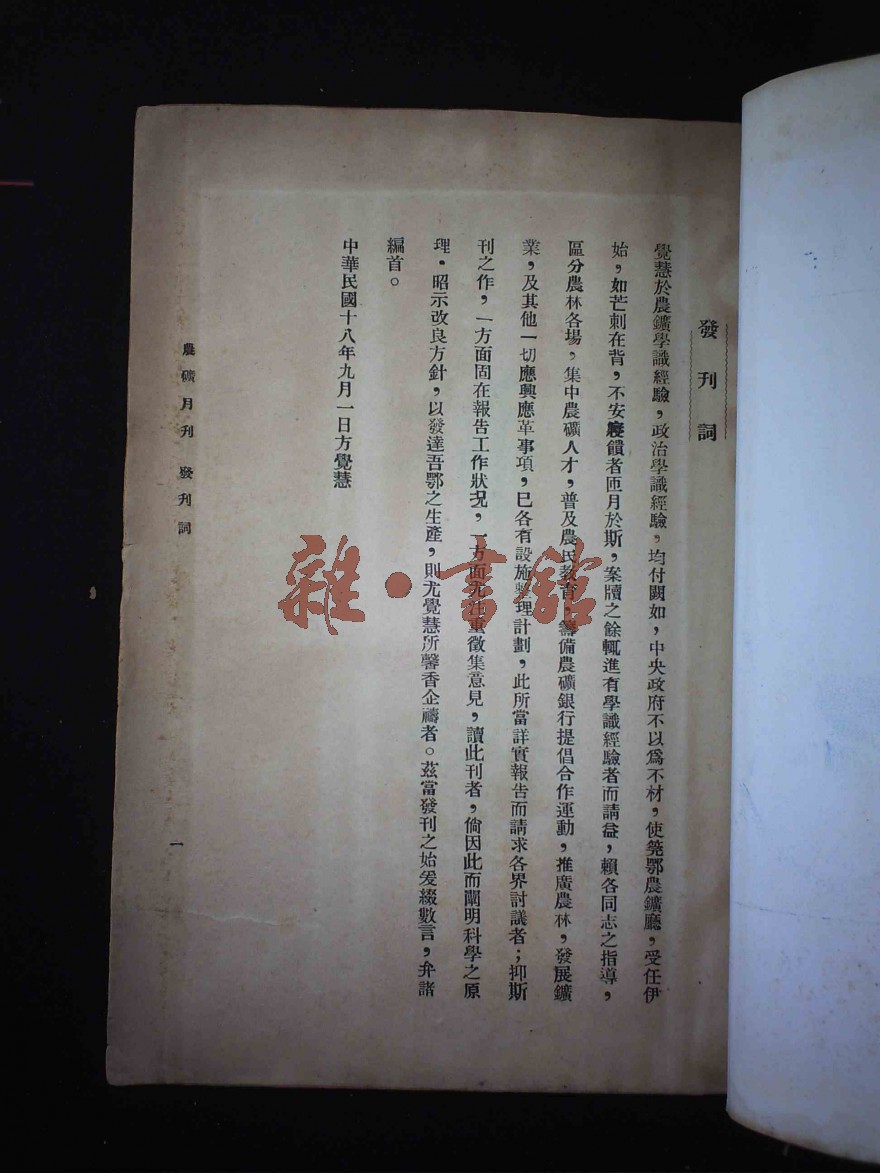 發刊詞
覺慧於農鑛學識經驗，政治學識經驗，均付闕如，中央政府不以爲不材，使筦鄂農鑛廳，受任伊
始，如芒刺在背，不安寢饋者匝月於斯，案牘之餘輒進有學識經驗者而請益，賴各同志之指導，
區分農林各場，集中農礦人才，普及農民教育，籌備農礦銀行提倡合作運動，推廣農林，發展鑛
業，及其他一切應興應革事項，已各有設施整理計劃，此所當詳實報告而請求各界討議者；抑斯
刊之作，一方面固在報告工作狀况，一方面尤注重徵集意見，讀此刊者，倘因此而闡明科學之原
理・昭示改良方針，以發達吾鄂之生產，則尤覺慧所馨香企禱者。茲當發刊之始爰綴數言，弁諸
編首。
中華民國十八年九月一日方覺慧
農礦月刊 發刊詞
一
雜・書館